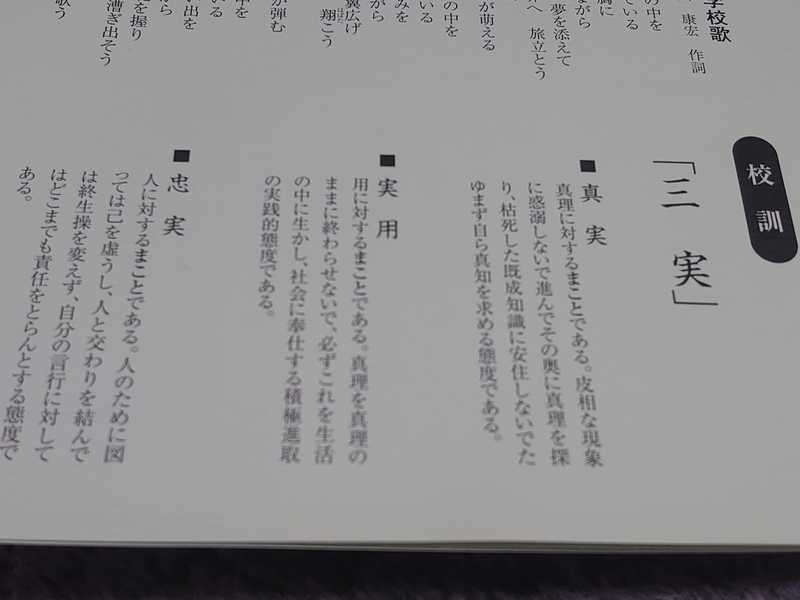 学校歌
康宏 作詞
の中を
ている
胸に
ながら
夢を添えて
へ 旅立とう
が萌える
の中を
いる
みを
がら
翼広げ
翔こう
はばた
が弾む
中を
いる
い出を
から
を握り
漕ぎ出そう
歌う
校訓
「三実」
■真実
真理に対するまことである。皮相な現象
に惑溺しないで進んでその奥に真理を探
り、枯死した既成知識に安住しないでた
ゆまず自ら真知を求める態度である。
■実用
用に対するまことである。真理を真理の
ままに終わらせないで、必ずこれを生活
の中に生かし、社会に奉仕する積極進取
の実践的態度である。
■忠実
人に対するまことである。人のために図
っては己を虚うし、人と交わりを結んで
は終生操を変えず、自分の言行に対して
はどこまでも責任をとらんとする態度で
ある。